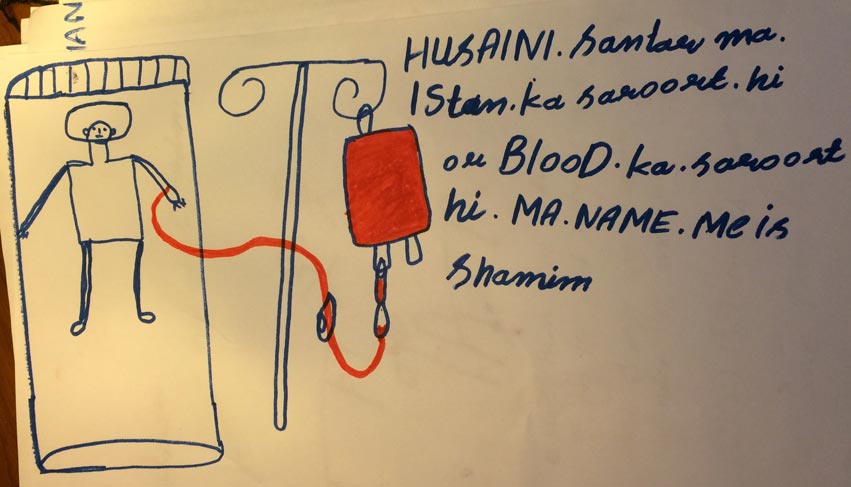 IAN
HUSAINI. santar ma.
IStan. ka saroort. hi
or BlooD. ka. saroort
hi. MA. NAME. Me is
shamim